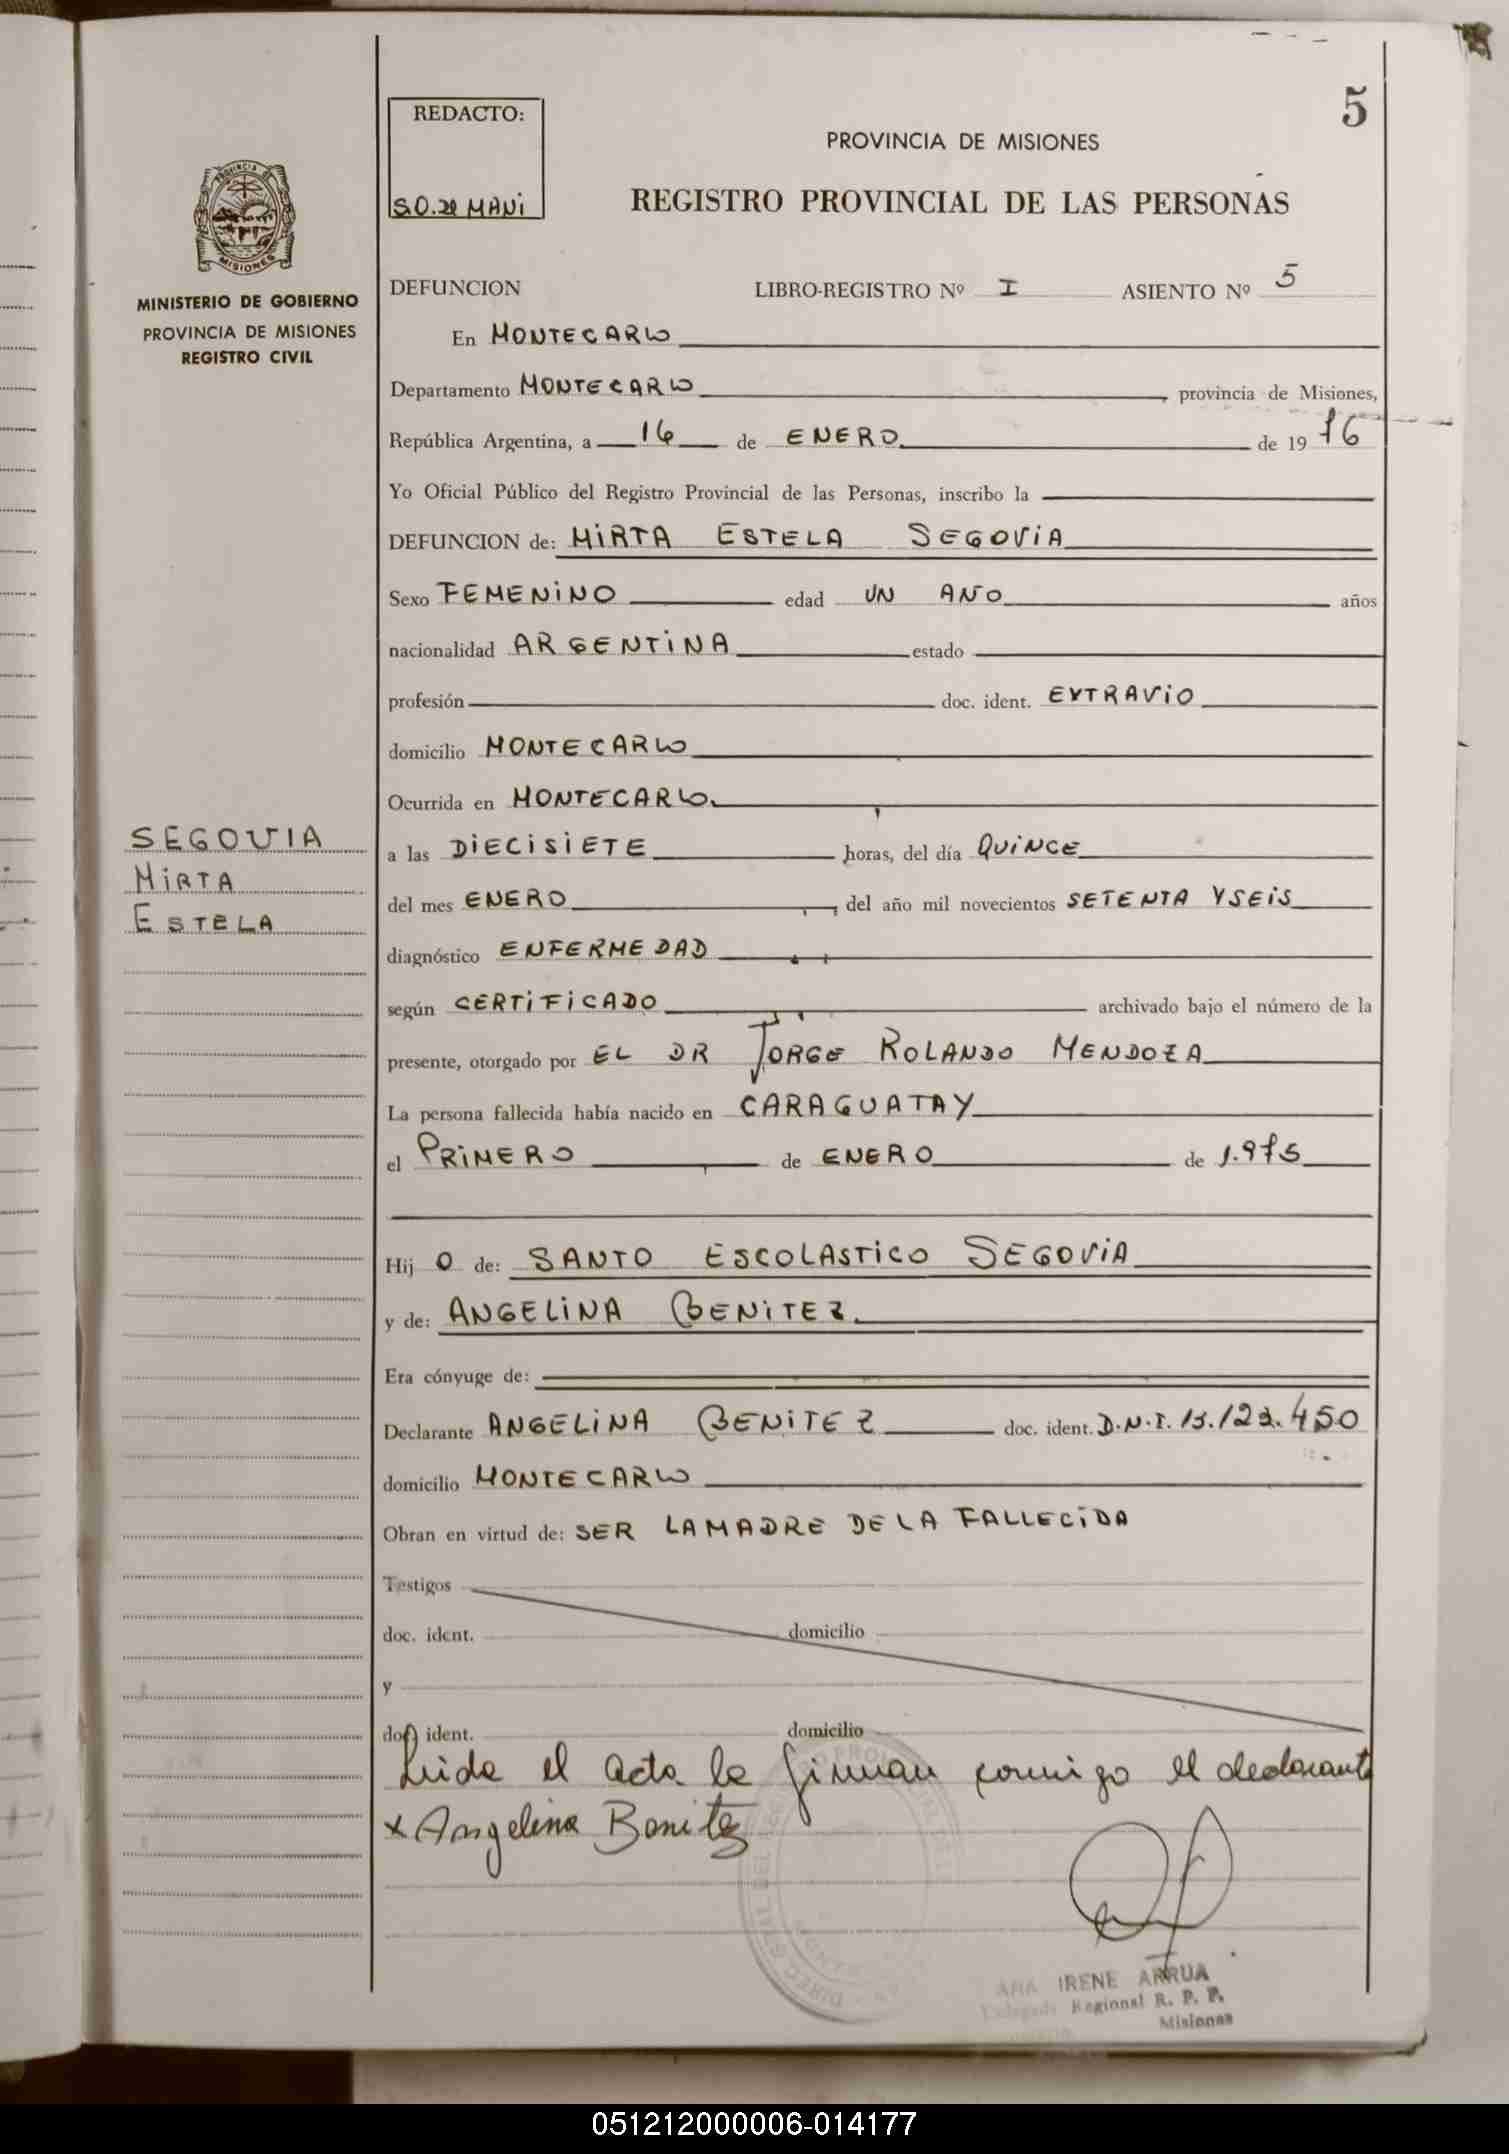 5
REDACTO:
PROVINCIA DE MISIONES
REGISTRO PROVINCIAL DE LAS PERSONAS
PROVINCIA DE
MISIONES
MINISTERIO DE GOBIERNO
PROVINCIA DE MISIONES
REGISTRO CIVIL
DEFUNCION LIBRO-REGISTRO Nº I ASIENTO Nº 5
En MONTECARLO
Departamento MONTECARLO, provincia de Misiones,
República Argentina, a 16 de ENERO de 1976
Yo Oficial Público del Registro Provincial de las Personas, inscribo la
DEFUNCION de: MIRTA ESTELA SEGOVIA
Sexo FEMENINO edad UN AÑO años
nacionalidad ARGENTINA estado
profesión doc. ident. EXTRAVIO
domicilio MONTECARLO
Ocurrida en MONTECARLO
SEGOVIA
MIRTA
ESTELA
a las DIECISIETE horas, del día QUINCE
del mes ENERO, del año mil novecientos SETENTA Y SEIS
diagnóstico ENFERMEDAD
según CERTIFICADO archivado bajo el número de la
presente, otorgado por EL DR JORGE ROLANDO MENDOZA
La persona fallecida había nacido en CARAGUATAY
el PRIMERO de ENERO de 1.975
Hij O de: SANTO ESCOLASTICO SEGOVIA
y de: ANGELINA BENITEZ
Era cónyuge de:
Declarante ANGELINA BENITEZ doc. ident. D.N.I. 13.123.450
domicilio MONTECARLO
Obran en virtud de: SER LA MADRE DE LA FALLECIDA
Testigos
doc. ident. domicilio
y
doc. ident. domicilio
Leida el acta la firman conmigo el declarante
x Angelina Benitez
ANA IRENE ARRUA
Delegada Regional R. P. P.
Misiones
051212000006-014177